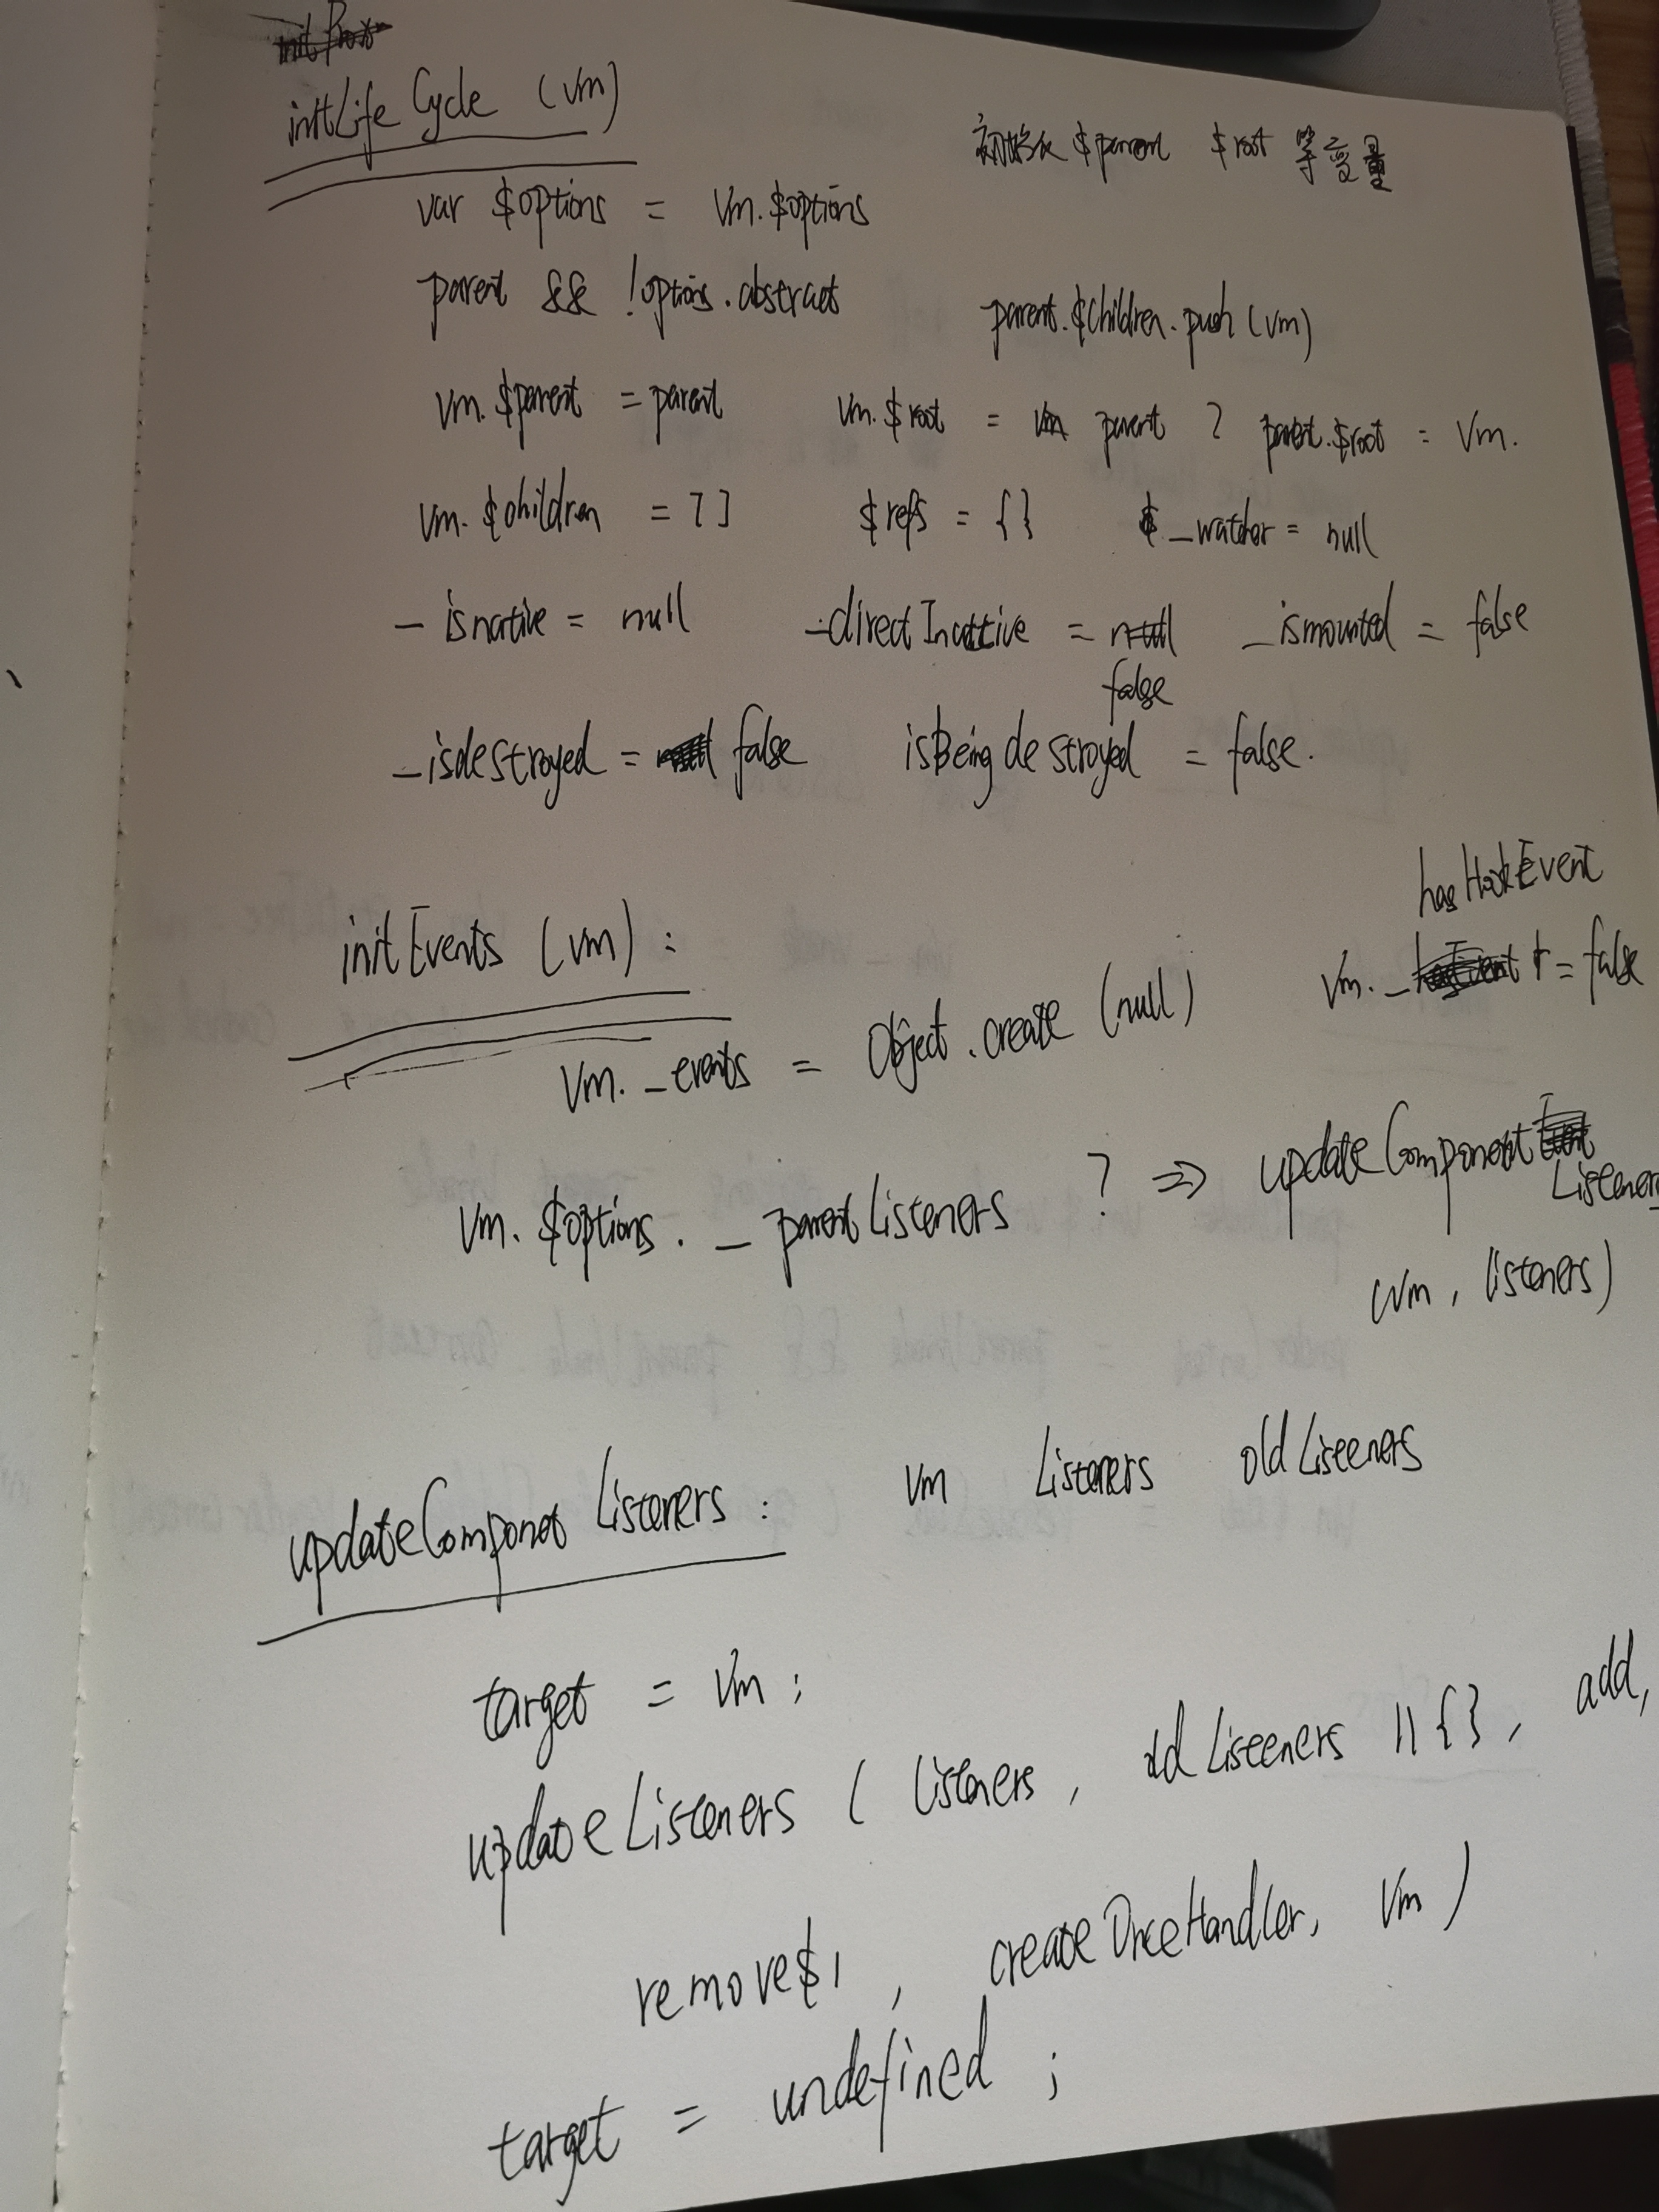 initLifeCycle (vm)
初始化 $parent $root 等变量
var $options = vm.$options
parent && !options.abstract parent.$children.push(vm)
vm.$parent = parent vm.$root = parent ? parent.$root : vm.
vm.$children = [] $refs = {} _watcher = null
_isnative = null _directInactive = false _ismounted = false
_isdestroyed = false isBeingdestroyed = false.
initEvents (vm):
vm._events = Object.create(null) vm._hasHookEvent = false
vm.$options._parentListeners ? => updateComponentListeners
(vm, listeners)
updateComponet Listeners: vm Listeners oldListeners
target = vm;
updateListeners ( listeners, oldListeners || {}, add,
remove$1, createOnceHandler, vm)
target = undefined;